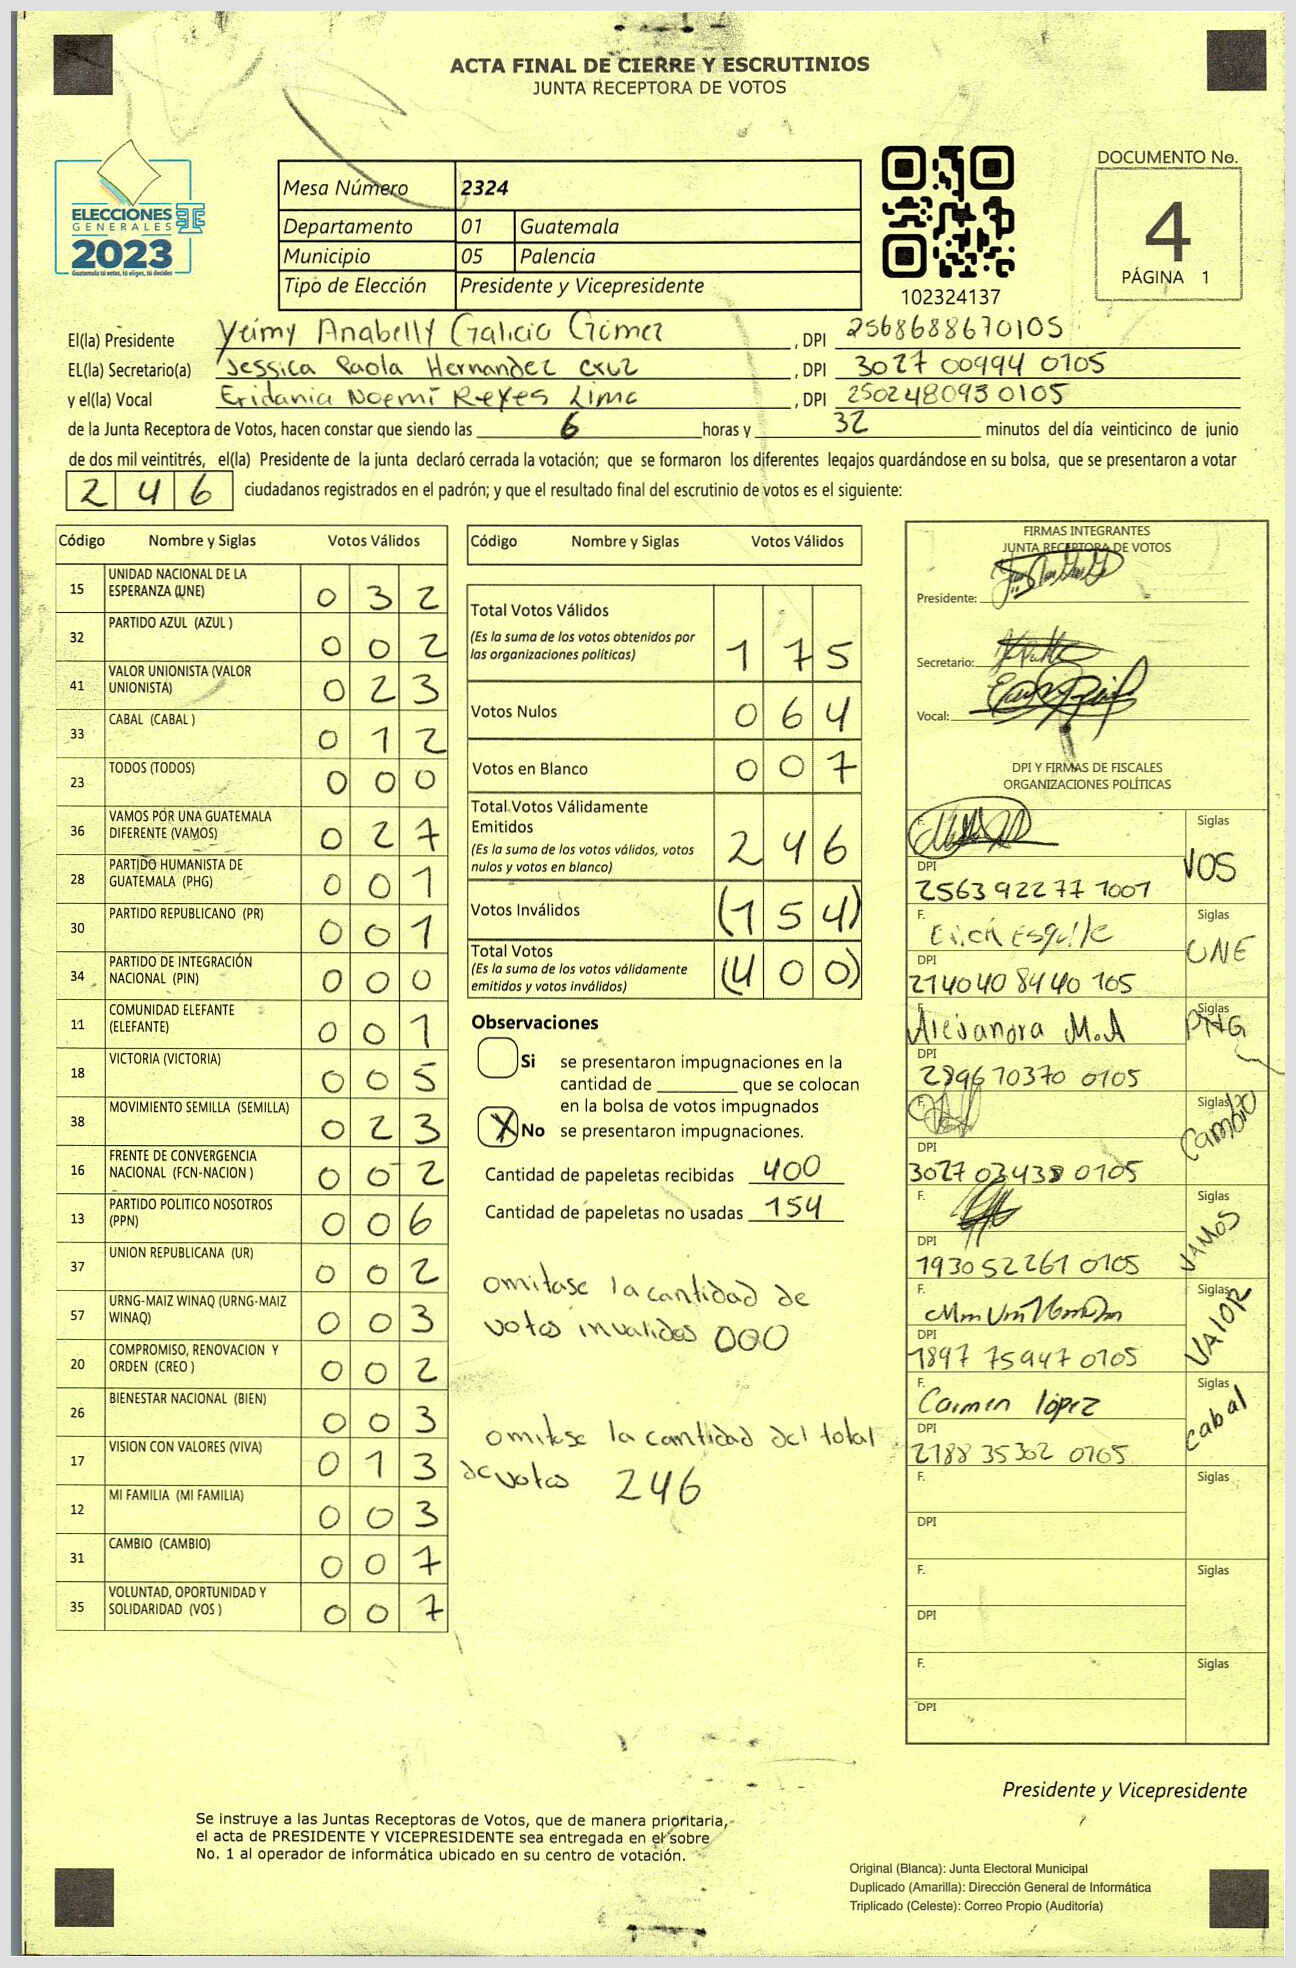 ACTA FINAL DE CIERRE Y ESCRUTINIOS
JUNTA RECEPTORA DE VOTOS
ELECCIONES
GENERALES
2023
Guatemala tú votas, tú eliges, tú decides
Mesa Número 2324
Departamento 01 Guatemala
Municipio 05 Palencia
Tipo de Elección Presidente y Vicepresidente
102324137
DOCUMENTO No.
4
PÁGINA 1
El(la) Presidente Yeimy Anabelly Galicia Gómez, DPI 2568688670105
EL(la) Secretario(a) Jessica Paola Hernandez Cruz, DPI 3027 00994 0105
y el(la) Vocal Eridania Noemí Reyes Lima, DPI 2502480930105
de la Junta Receptora de Votos, hacen constar que siendo las 6 horas y 32 minutos del día veinticinco de junio
de dos mil veintitrés, el(la) Presidente de la junta declaró cerrada la votación; que se formaron los diferentes legajos guardándose en su bolsa, que se presentaron a votar
246 ciudadanos registrados en el padrón; y que el resultado final del escrutinio de votos es el siguiente:
Código Nombre y Siglas Votos Válidos
15 UNIDAD NACIONAL DE LA ESPERANZA (UNE) 032
32 PARTIDO AZUL (AZUL ) 002
41 VALOR UNIONISTA (VALOR UNIONISTA) 023
33 CABAL (CABAL ) 012
23 TODOS (TODOS) 000
36 VAMOS POR UNA GUATEMALA DIFERENTE (VAMOS) 027
28 PARTIDO HUMANISTA DE GUATEMALA (PHG) 001
30 PARTIDO REPUBLICANO (PR) 001
34 PARTIDO DE INTEGRACIÓN NACIONAL (PIN) 000
11 COMUNIDAD ELEFANTE (ELEFANTE) 001
18 VICTORIA (VICTORIA) 005
38 MOVIMIENTO SEMILLA (SEMILLA) 023
16 FRENTE DE CONVERGENCIA NACIONAL (FCN-NACION ) 002
13 PARTIDO POLITICO NOSOTROS (PPN) 006
37 UNION REPUBLICANA (UR) 002
57 URNG-MAIZ WINAQ (URNG-MAIZ WINAQ) 003
20 COMPROMISO, RENOVACION Y ORDEN (CREO ) 002
26 BIENESTAR NACIONAL (BIEN) 003
17 VISION CON VALORES (VIVA) 013
12 MI FAMILIA (MI FAMILIA) 003
31 CAMBIO (CAMBIO) 007
35 VOLUNTAD, OPORTUNIDAD Y SOLIDARIDAD (VOS ) 007
Código Nombre y Siglas Votos Válidos
Total Votos Válidos 175
(Es la suma de los votos obtenidos por
las organizaciones políticas)
Votos Nulos 064
Votos en Blanco 007
Total Votos Válidamente
Emitidos 246
(Es la suma de los votos válidos, votos
nulos y votos en blanco)
Votos Inválidos (154)
Total Votos (400)
(Es la suma de los votos válidamente
emitidos y votos inválidos)
Observaciones
Si se presentaron impugnaciones en la
cantidad de ________ que se colocan
en la bolsa de votos impugnados
X No se presentaron impugnaciones.
Cantidad de papeletas recibidas 400
Cantidad de papeletas no usadas 154
omitase la cantidad de
votos invalidos 000
omitase la cantidad del total
de votos 246
FIRMAS INTEGRANTES
JUNTA RECEPTORA DE VOTOS
Presidente:
Secretario:
Vocal:
DPI Y FIRMAS DE FISCALES
ORGANIZACIONES POLÍTICAS
F. Siglas VOS
DPI 2563 92277 1001
F. Erick Esquite Siglas UNE
DPI 2140408440105
F. Alejandra M.A Siglas PHG
DPI 289670370 0105
F. Siglas Cambio
DPI 3027 03438 0105
F. Siglas VAMOS
DPI 1930522610105
F. Siglas VALOR
DPI 1897 75947 0105
F. Carmen López Siglas cabal
DPI 2188 35302 0105
F. Siglas
DPI
F. Siglas
DPI
F. Siglas
DPI
Presidente y Vicepresidente
Se instruye a las Juntas Receptoras de Votos, que de manera prioritaria,
el acta de PRESIDENTE Y VICEPRESIDENTE sea entregada en el sobre
No. 1 al operador de informática ubicado en su centro de votación.
Original (Blanca): Junta Electoral Municipal
Duplicado (Amarilla): Dirección General de Informática
Triplicado (Celeste): Correo Propio (Auditoría)